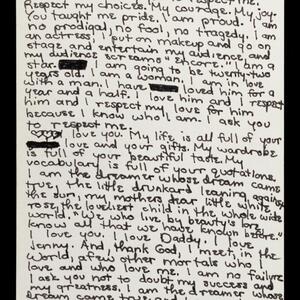 Respect my choices. My courage. My joy.
You taught me pride. I am proud. I am
no prodigal, no fool, no tragedy. I am
an actress. I put on makeup and go on
stage and entertain my audience and
my audience screams "Encore!" I am a
star. I am going to be twenty-two
years old. I am a woman. I am in love
with a man. I have loved him for a
year and a half. I love him and I respect
him and I respect my love for him
because I know who I am. I ask you
to respect me.
I love you. My life is all full of your
love and your gifts. My wardrobe
is full of your beautiful taste. My
vocabulary is full of your quotations.
I am the dreamer whose dream came
true, the little drunkard leaning against
the sun, my mothers dear little white
rose, the loveliest child in the whole wide
world. "We who live by beauty's law
know all that we have known before."
I love you. I love Daddy. I love
Jenny. And, thank God, I meet, in the
world, a few other mortals who I
love and who love me. I am no failure.
I ask you not to doubt my success and
my greatness. I am the dreamer whose
dream came true, and